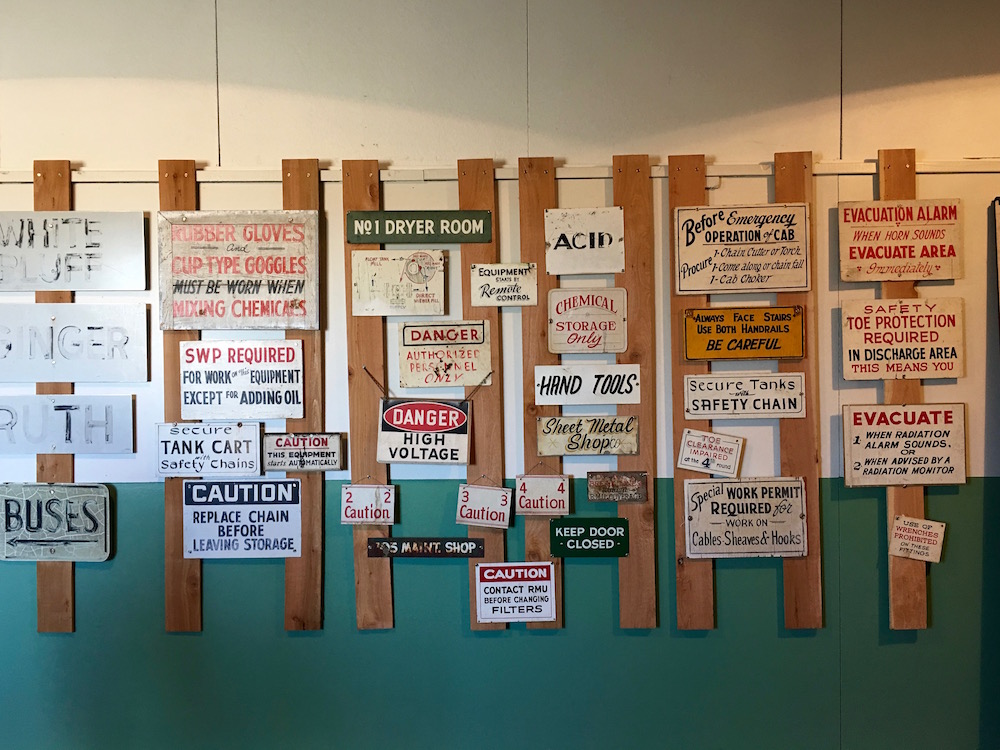 WHITE
BLUFF
GINGER
RUTH
BUSES
RUBBER GLOVES
and
CUP-TYPE GOGGLES
MUST BE WORN WHEN
MIXING CHEMICALS
SWP REQUIRED
FOR WORK ON THIS EQUIPMENT
EXCEPT FOR ADDING OIL
Secure
TANK CART
with
Safety Chains
CAUTION
THIS EQUIPMENT
STARTS AUTOMATICALLY
CAUTION
REPLACE CHAIN
BEFORE
LEAVING STORAGE.
NO1 DRYER ROOM
DIRECT
EQUIPMENT
STARTS BY
Remote
CONTROL
DANGER
AUTHORIZED
PERSONNEL
ONLY
DANGER
HIGH
VOLTAGE
2 2
Caution
3 3
Caution
4 4
Caution
MAINT. SHOP
CAUTION
CONTACT RMU
BEFORE CHANGING
FILTERS
ACID
CHEMICAL
STORAGE
Only
·HAND TOOLS·
Sheet Metal
Shop
KEEP DOOR
CLOSED
Before Emergency
OPERATION of CAB
Procure
1-Chain Cutter or Torch
1-Come along or chain fall
1-Cab Choker
ALWAYS FACE STAIRS
USE BOTH HANDRAILS
BE CAREFUL
SECURE TANKS
with
SAFETY CHAIN
TOE
CLEARANCE
IMPAIRED
at the 4th round
Special WORK PERMIT
REQUIRED for
WORK ON
Cables-Sheaves & Hooks
EVACUATION ALARM
WHEN HORN SOUNDS
EVACUATE AREA
Immediately
SAFETY
TOE PROTECTION
REQUIRED
IN DISCHARGE AREA
THIS MEANS YOU
EVACUATE
1 WHEN RADIATION
ALARM SOUNDS,
OR
2 WHEN ADVISED BY A
RADIATION MONITOR
USE OF
WRENCHES
PROHIBITED
ON THESE
FITTINGS